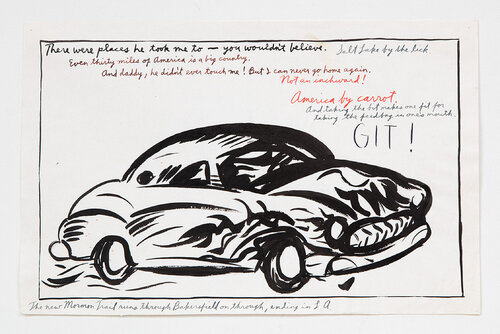 There were places he took me to — you wouldn't believe.
Salt Lake by the lick
Even thirty miles of America is a big country.
And daddy, he didn't ever touch me! But I can never go home again.
Not an inchward!
America by carrot,
And taking the bit makes one fit for
taking the feedbag in one's mouth.
GIT!
The new Mormon Trail runs through Bakersfield on through, ending in L A